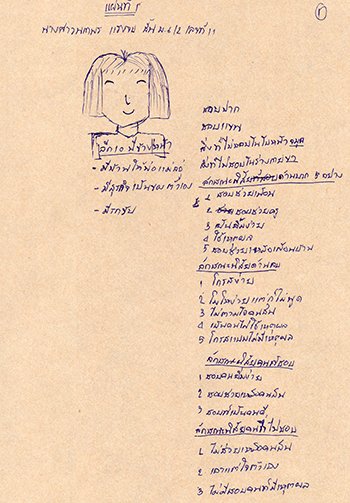 แผ่นที่ ๑
นางสาวนภาพร ชั้น ม.6/2 เลขที่ 11
อีก 10 ปีข้างหน้า
- มีบ้านให้พ่อแม่อยู่
- มีธุรกิจเป็นของตัวเอง
- มีรถขับ
ชอบปาก
ชอบแขน
สิ่งที่ไม่ชอบในใบหน้า จมูก
สิ่งที่ไม่ชอบในร่างกาย ขา
ลักษณะนิสัยด้านบวก 5 อย่าง
1 ชอบช่วยเพื่อน
2 ชอบช่วยครู
3 เป็นคนง่าย
4 ใช้เหตุผล
5 ชอบช่วยเหลือเพื่อนบ้าน
ลักษณะนิสัยด้านลบ
1 โกรธง่าย
2 โมโหง่ายแต่ก็ไม่พูด
3 ไม่ตามใจคนอื่น
4 เป็นคนไม่ใช้เหตุผล
5 โกรธแบบไม่มีเหตุผล
ลักษณะนิสัยคนที่ชอบ
1 ชอบคนยิ้มง่าย
2 ชอบช่วยเหลือคนอื่น
3 ชอบที่เป็นคนดี
ลักษณะนิสัยคนที่ไม่ชอบ
1 ไม่ช่วยเหลือคนอื่น
2 เอาแต่ใจตัวเอง
3 ไม่ชอบคนที่ไม่มีเหตุผล